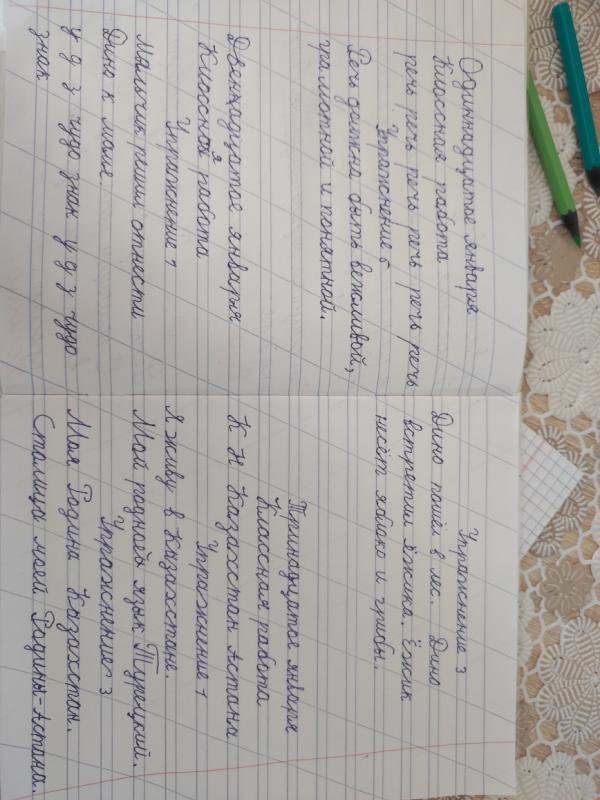 Одиннадцатое января
Классная работа
речь речь речь речь речь речь
Упражнение 5
Речь должна быть вежливой,
грамотной и понятной.
Двенадцатое января
Классная работа
Упражнение 1
Мальчик пошли отнести
Дино к маме.
у д з чудо знак у д з чудо
знак
Упражнение 3
Дино пошёл в лес. Дино
встретил Ёжика. Ёжик
несёт яблоко и грибы.
Тринадцатое января
Классная работа
К Н Казахстан Астана
Упражниние 1
Я живу в Казахстане.
Мой родной язык Турецкий.
Упражнение 3
Моя Родина Казахстан.
Столица моей Родины-Астана.